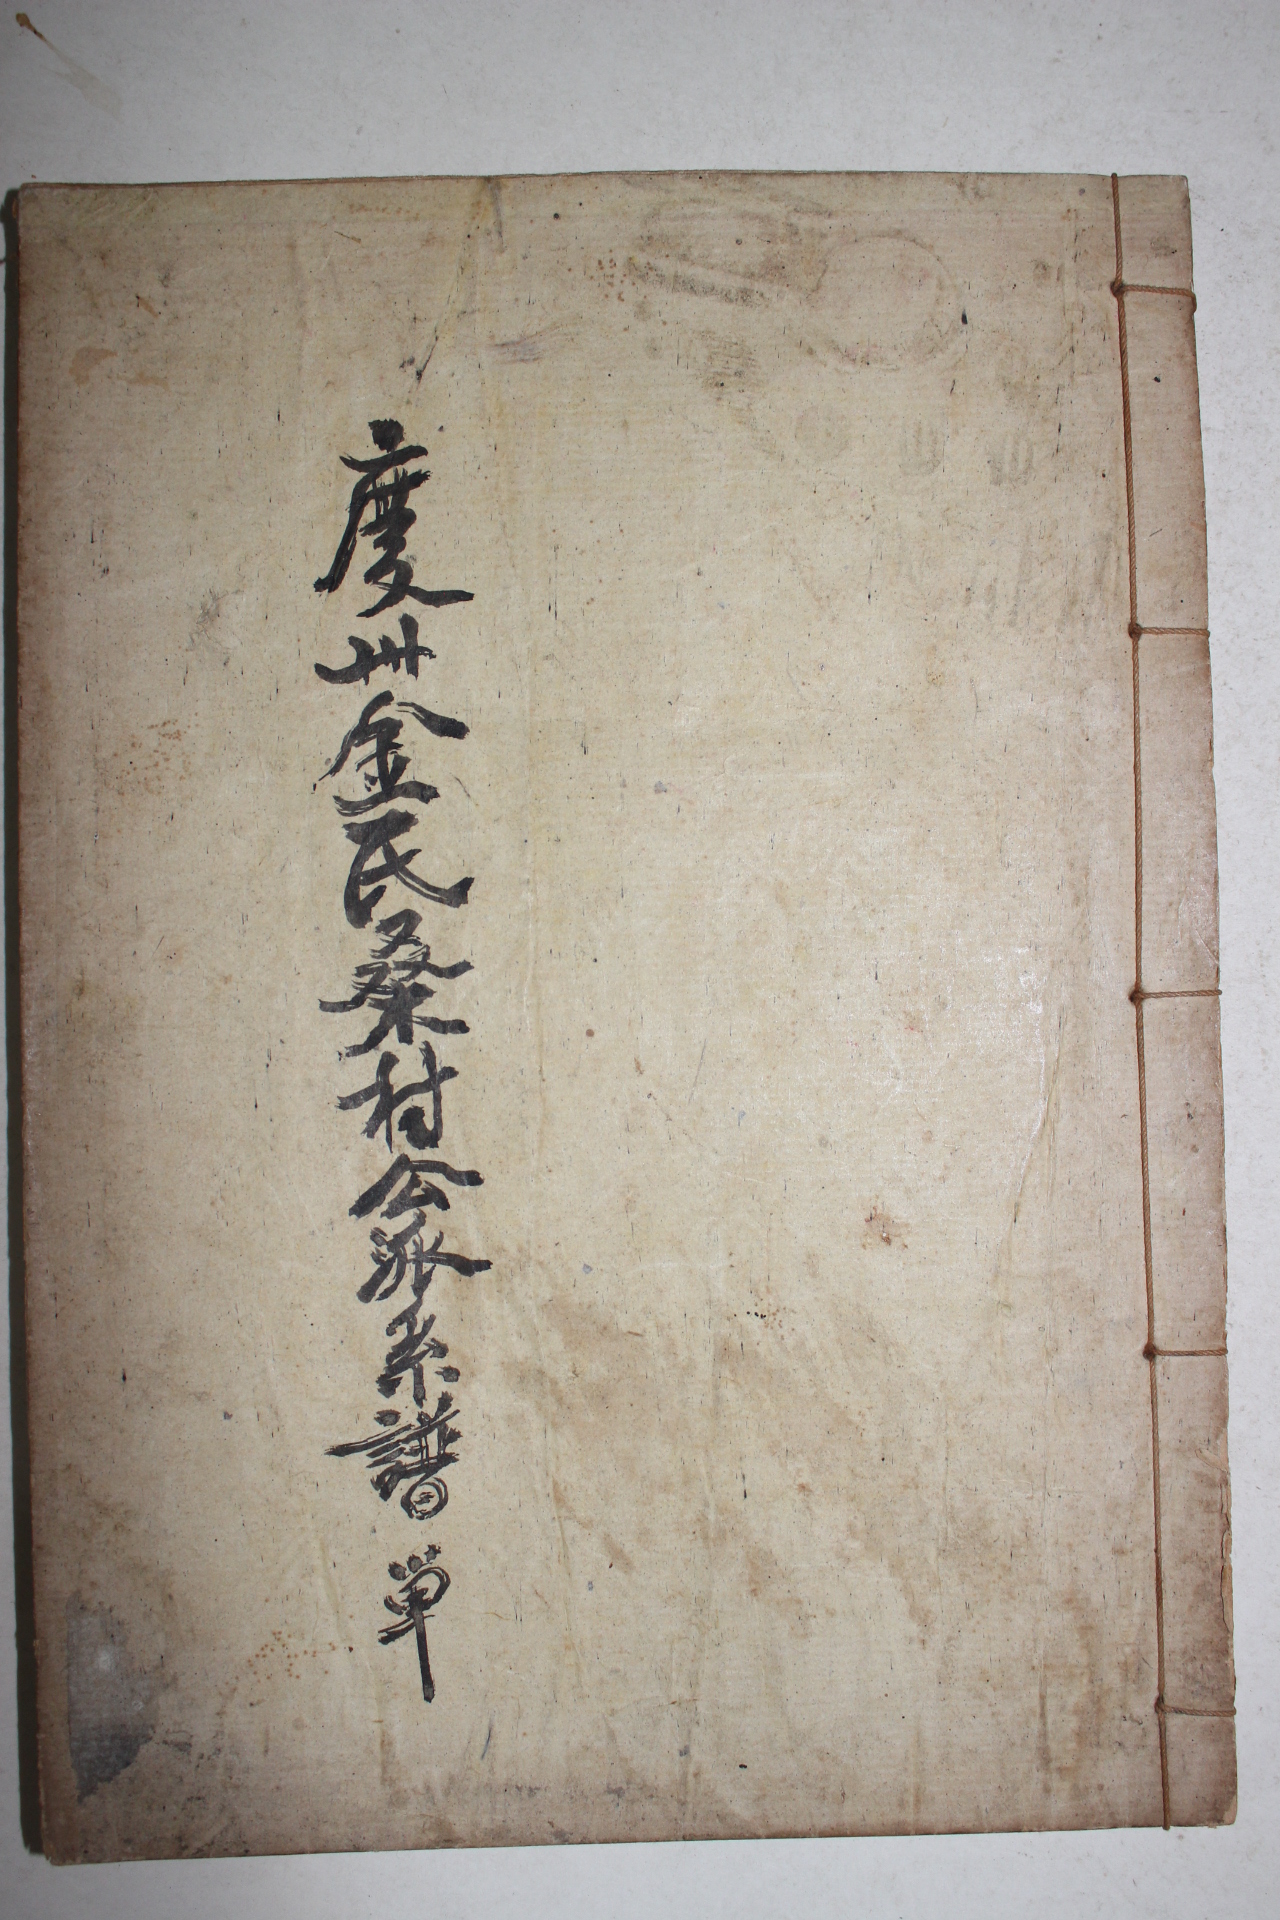 慶州金氏桑村公派系譜 単